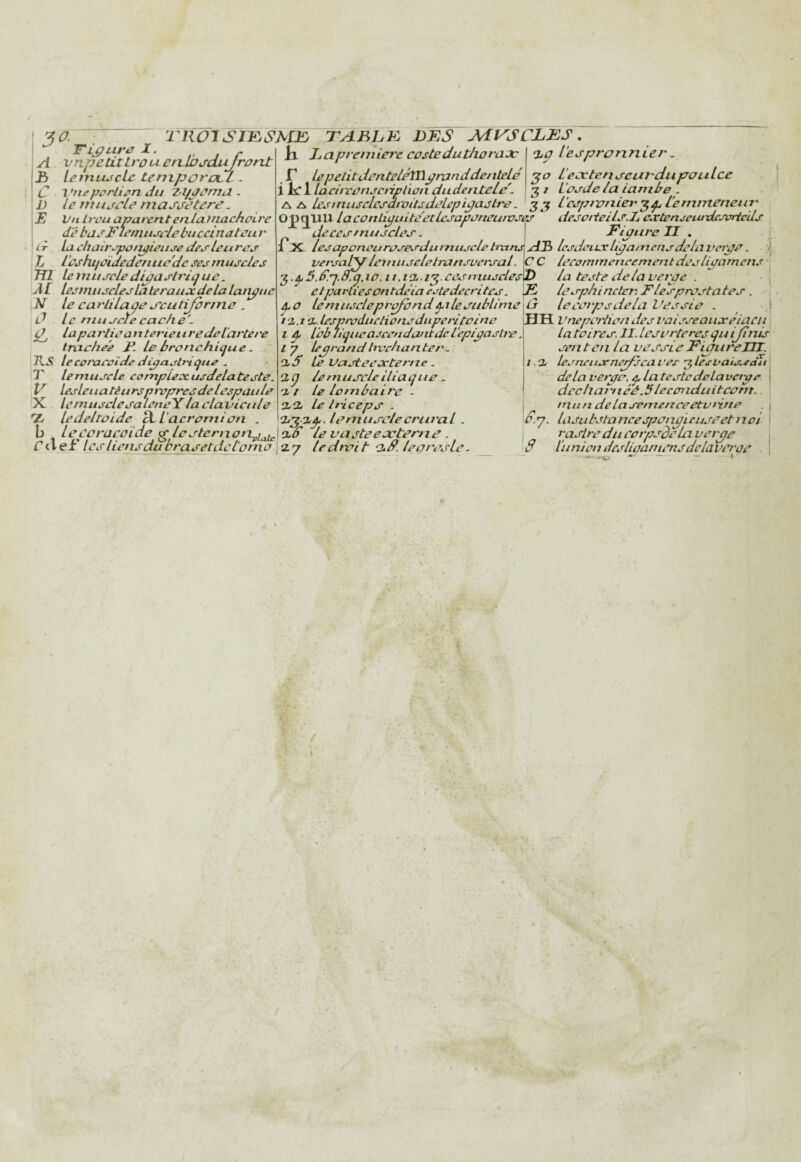 30. TROISIESME TABLE DES MVSCLES.
Figure I.
A vn petit trou en l'os du front
B le muscle temporal.
C vne portion du zygoma.
D le muscle massetere.
E Vn trou aparent en la machoire
de bas F le muscle buccinateur
G la chair spongieuse des leures
L l'os hyoide denue de ses muscles
M le muscle digastrique.
M les muscles lateraux de la langue
N le cartilage scutiforme.
O le muscle caché.
Q la partie anterieure de l'artere
trachee P. le bronchique.
RS le coracoide digastrique.
T le muscle complexus de la teste.
V les leuateurs propres de l'espaule
X le muscle salene Y la clavicule
Z le deltoide a l'acromion.
b le coracoide g le sternon plate
C d e f les liens du bras et de l'omo
h La premiere coste du thorax
r le petit dentelé m grand dentelé
i k l la circonscription du dentele.
Δ Δ les muscles droits de l'epigastre.
o p q u u la contiguité et les aponeuroses
de ces muscles.
f x les aponeuroses du muscle trans
versal y le muscle transversal.
3.4.5.6.7.8.9.10.11.12.13. ces muscles
et parties ont déia esté decrites.
4.o le muscle profond 4.1 le sublime
12.12. les productions du peritoine
14 l'oblique ascendant de l'epigastre.
17 le grand trochanter.
25 le vaste externe.
29 le muscle iliaque.
21 le lombaire.
22 le triceps.
23.24. le muscle crural.
26 le vaste externe.
27 le droit 28. le gresle.
29 l'espronnier.
30 l'extenseur du poulce
31 l'os de la iambe.
33 l'espronier 34. l'emmeneur
des orteils. I. extenseur des orteils
Figure II.
AB les deux ligamens de la verge.
CC le commencement des ligamens
D la teste de la verge.
E le sphincter. F les prostates.
G le corps de la Vessie.
HH Vne portion des vaisseaux eiacu
latoires. II. les vrteres qui finis
sent en la vessie Figure III.
1.2 les neux nerfs caves 3 les vaisseau
de la verge. 4 la teste de la verge
decharnée. 5 le conduit com.
mun de la semence et vrine
6.7. la substance spongieuse et noi
rastre du corps de la verge
8 l'union des ligamens de la Verge.